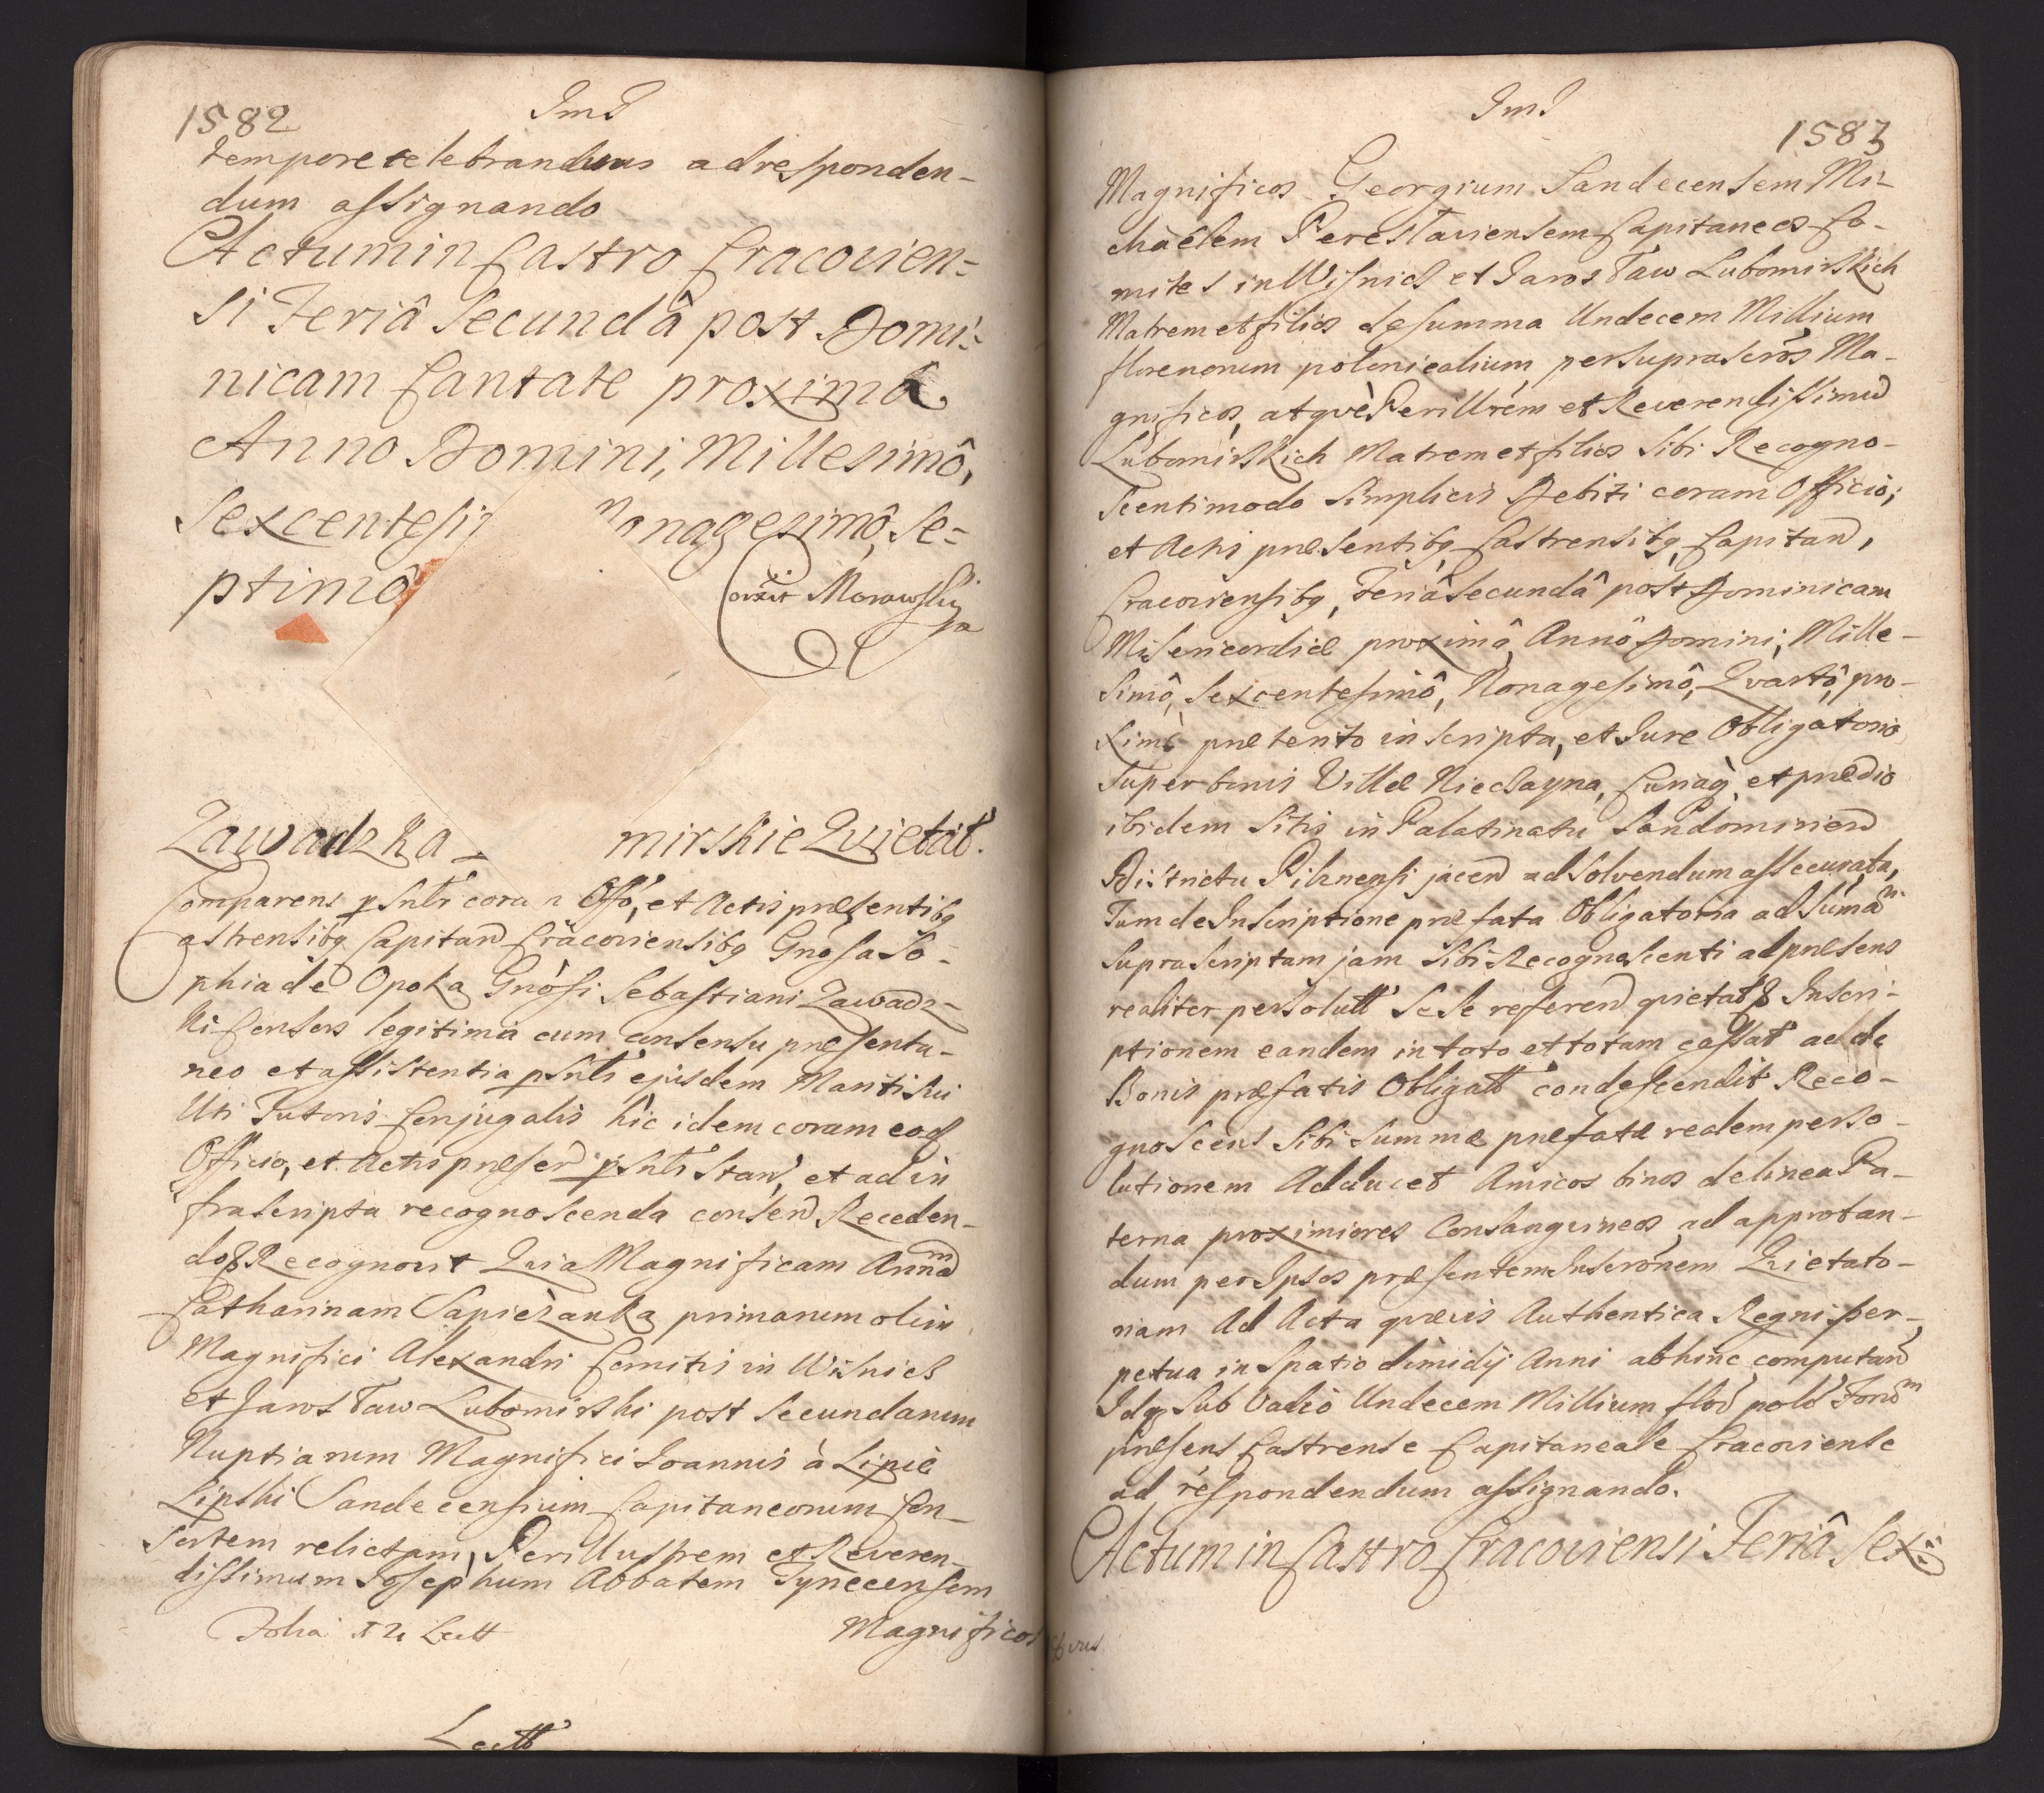 1582
ImI
tempore celebrandum ad responden-
dum assignando
Actum in Castro Cracovien=
si Feriâ Secundâ post Domi=
nicam Cantate proximâ
Anno Domini, Millesimô,
Sexcentesi Nonagesimô, Se=
ptimô
Morawsky
Zawadzka mirskie Qvietat.
Comparens psnlr coram Offo, et Actis præsentibq
Castrensibq Capitan Cracoviensibq Gnosa So-
phia de Opoka Gnôsi Sebastiani Zawadz-
ki Consors legitima cum consensu præsenta-
neo et assistentia psnli ejusdem Mariti sui
Uti Tutoris Conjugalis hic idem coram eod
Officio, et Actis præsen psnlr stan, et ad in
frascripta recognoscenda consen Receden-
doq Recognovit Quia Magnificam Annam
Catharinam Sapiezanka primarum olim
Magnifici Alexandri Comitis in Wisnicz
et Jarosław Lubomirski post secundarum
Nuptiarum Magnifici Joannis à Lipie
Lipski Sandecensium Capitaneorum Con-
sortem relictam, Perillustrem et Reveren-
dissimum Josephum Abbatem Tynecensem
Folia Lectt
Magnificos
Lectt
ImI
1583
Magnificos Georgium Sandecensem Mi-
chaelem Peresłaviensem Capitaneos Co-
mites in Wisnicz et Jarosław Lubomirskich
Matrem et filios de summa Undecem Millium
florenorum polonicalium per suprascrôs Ma-
gnificos, atqvè Perillrem et Reverendissimum
Lubomirskich Matrem et filios sibi Recogno-
scenti modo simplicis Debiti coram Officio,
et Actis præsentibq Castrensibq Capitan,
Cracoviensibq, Feriâ Secundâ post Dominicam
Misericordiæ proximâ Annô Domini, Mille-
simô, Sexcentesimô, Nonagesimô, Qvartô, pro-
ximè præterito inscripta, et Jure Obligatorio
super bonis Villæ Niechayna, Cunaq, et prædio
ibidem sitis in Palatinatu Sandomirien
Districtu Pilznensi jacen ad solvendum assecurata,
Tum de Inscriptione præfata Obligatoria ad Sumam
suprascriptam jam sibi Recognoscenti ad præsens
realiter persolutt sese referen qvietat Inscri-
ptionem eandem in toto et totam cassat ac de
Bonis præfatis Obligatt condescendit Reco-
gnoscens sibi summæ præfatæ realem perso-
lutionem Adducet Amicos binos de linea Pa-
terna proximiores Consangvineos ad approban-
dum per Ipsos præsentem Inscrônem Qvietato-
riam Ad Acta qvævis Authentica Regni per-
petua in spatio dimidij Anni abhinc computan
Idq sub Vadio Undecem Millium flor pold Forum
præsens Castrense Capitaneale Cracoviense
ad respondendum assignando.
Actum in Castro Cracoviensi Feriâ Sex=